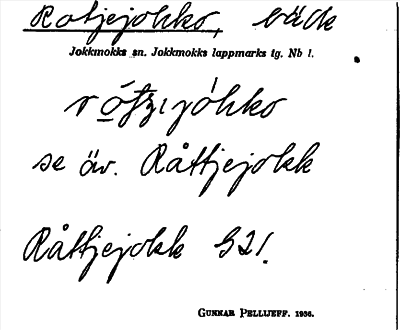 Råtjejohko, bäck
Jokkmokks sn. Jokkmokks lappmarks tg. Nb l.
se äv. Råttjejokk
Råttjejokk S21.
GUNNAR PELLIJEFF. 1956.